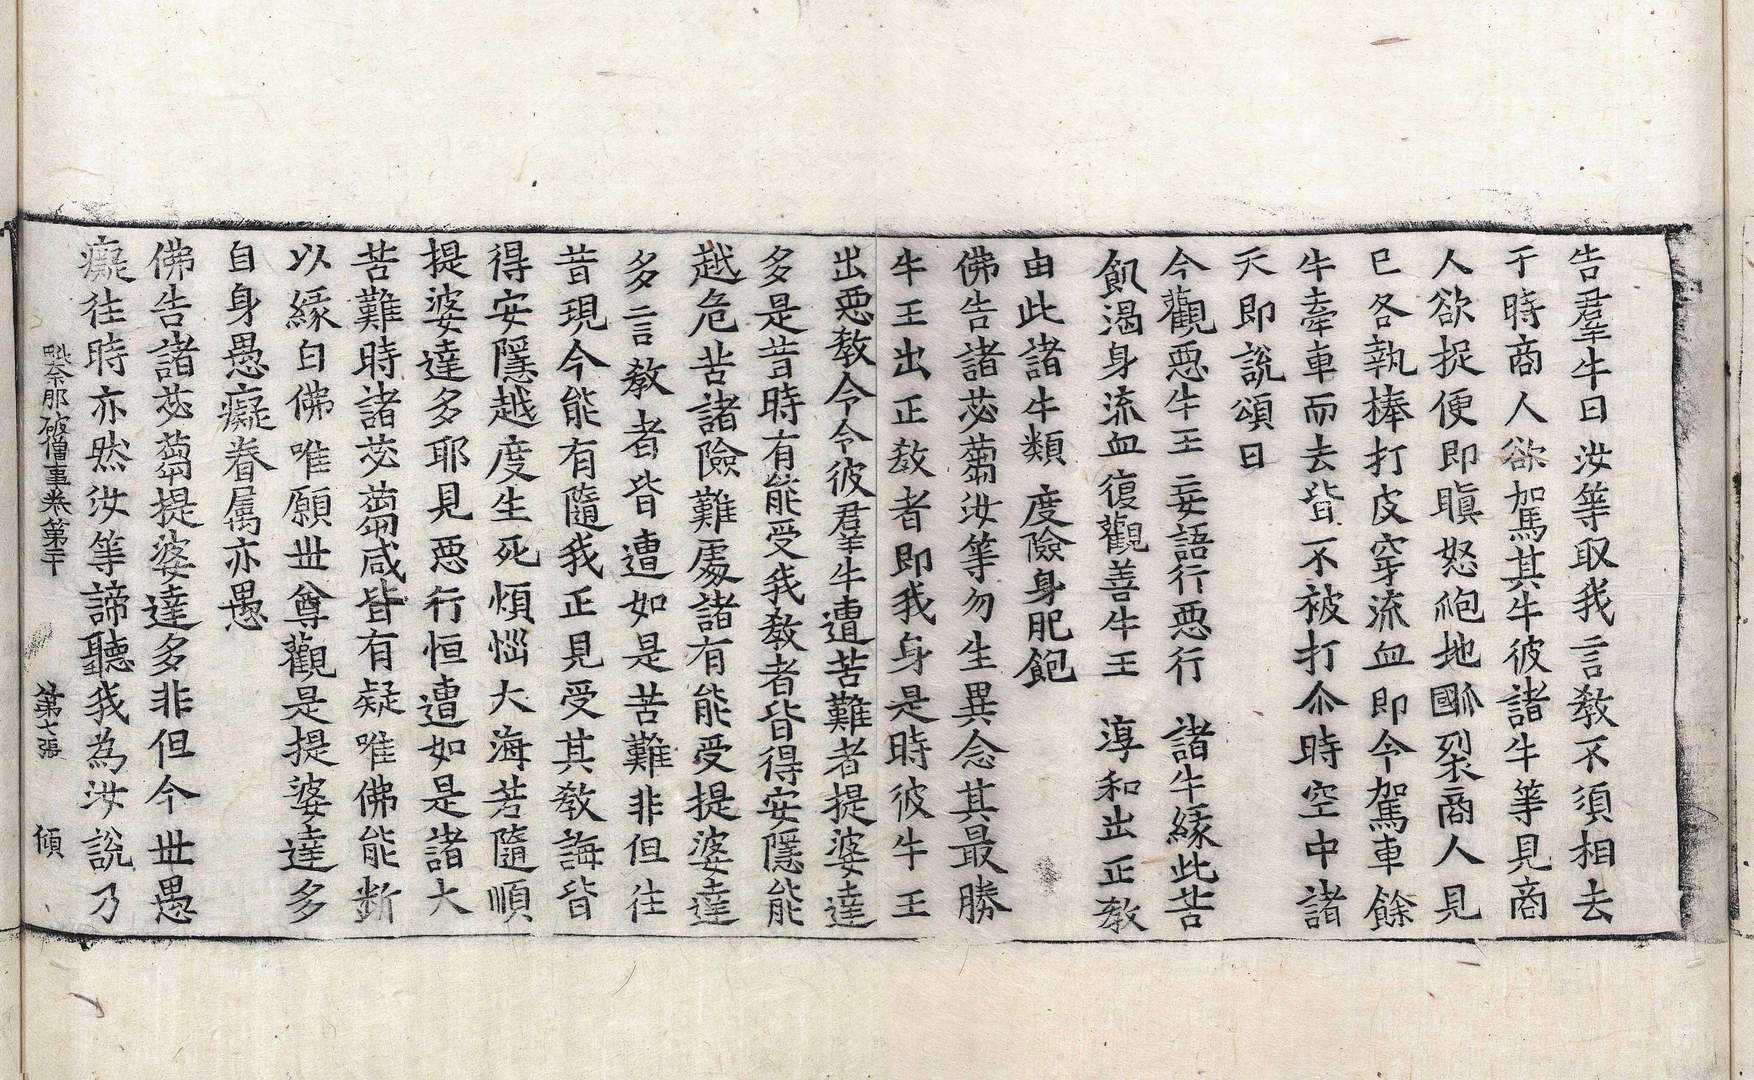 告羣牛曰汝等取我言敎不須相去
于時商人欲駕其牛彼諸牛等見商
人欲捉便即瞋怒皰地㘞裂商人見
已各執捧打皮穿流血即令駕車餘
牛牽車而去皆不被打尒時空中諸
天即說頌曰
今觀惡牛王 妄語行惡行 諸牛緣此苦
飢渴身流血 復觀善牛王 淳和出正敎
由此諸牛類 度險身肥飽
佛告諸苾蒭汝等勿生異念其最勝
牛王出正敎者即我身是時彼牛王
出惡敎令令彼羣牛遭苦難者提婆達
多是昔時有能受我敎者皆得安隱能
越危苦諸險難處諸有能受提婆達
多言敎者皆遭如是苦難非但往
昔現今能有隨我正見受其敎誨皆
得安隱越度生死煩惱大海若隨順
提婆達多耶見惡行恒遭如是諸大
苦難時諸苾蒭咸皆有疑唯佛能斷
以緣白佛唯願世尊觀是提婆達多
自身愚癡眷屬亦愚
佛告諸苾蒭提婆達多非但今世愚
癡往時亦然汝等諦聽我為汝說乃
毗奈耶破僧事卷第二十 第七張 傾